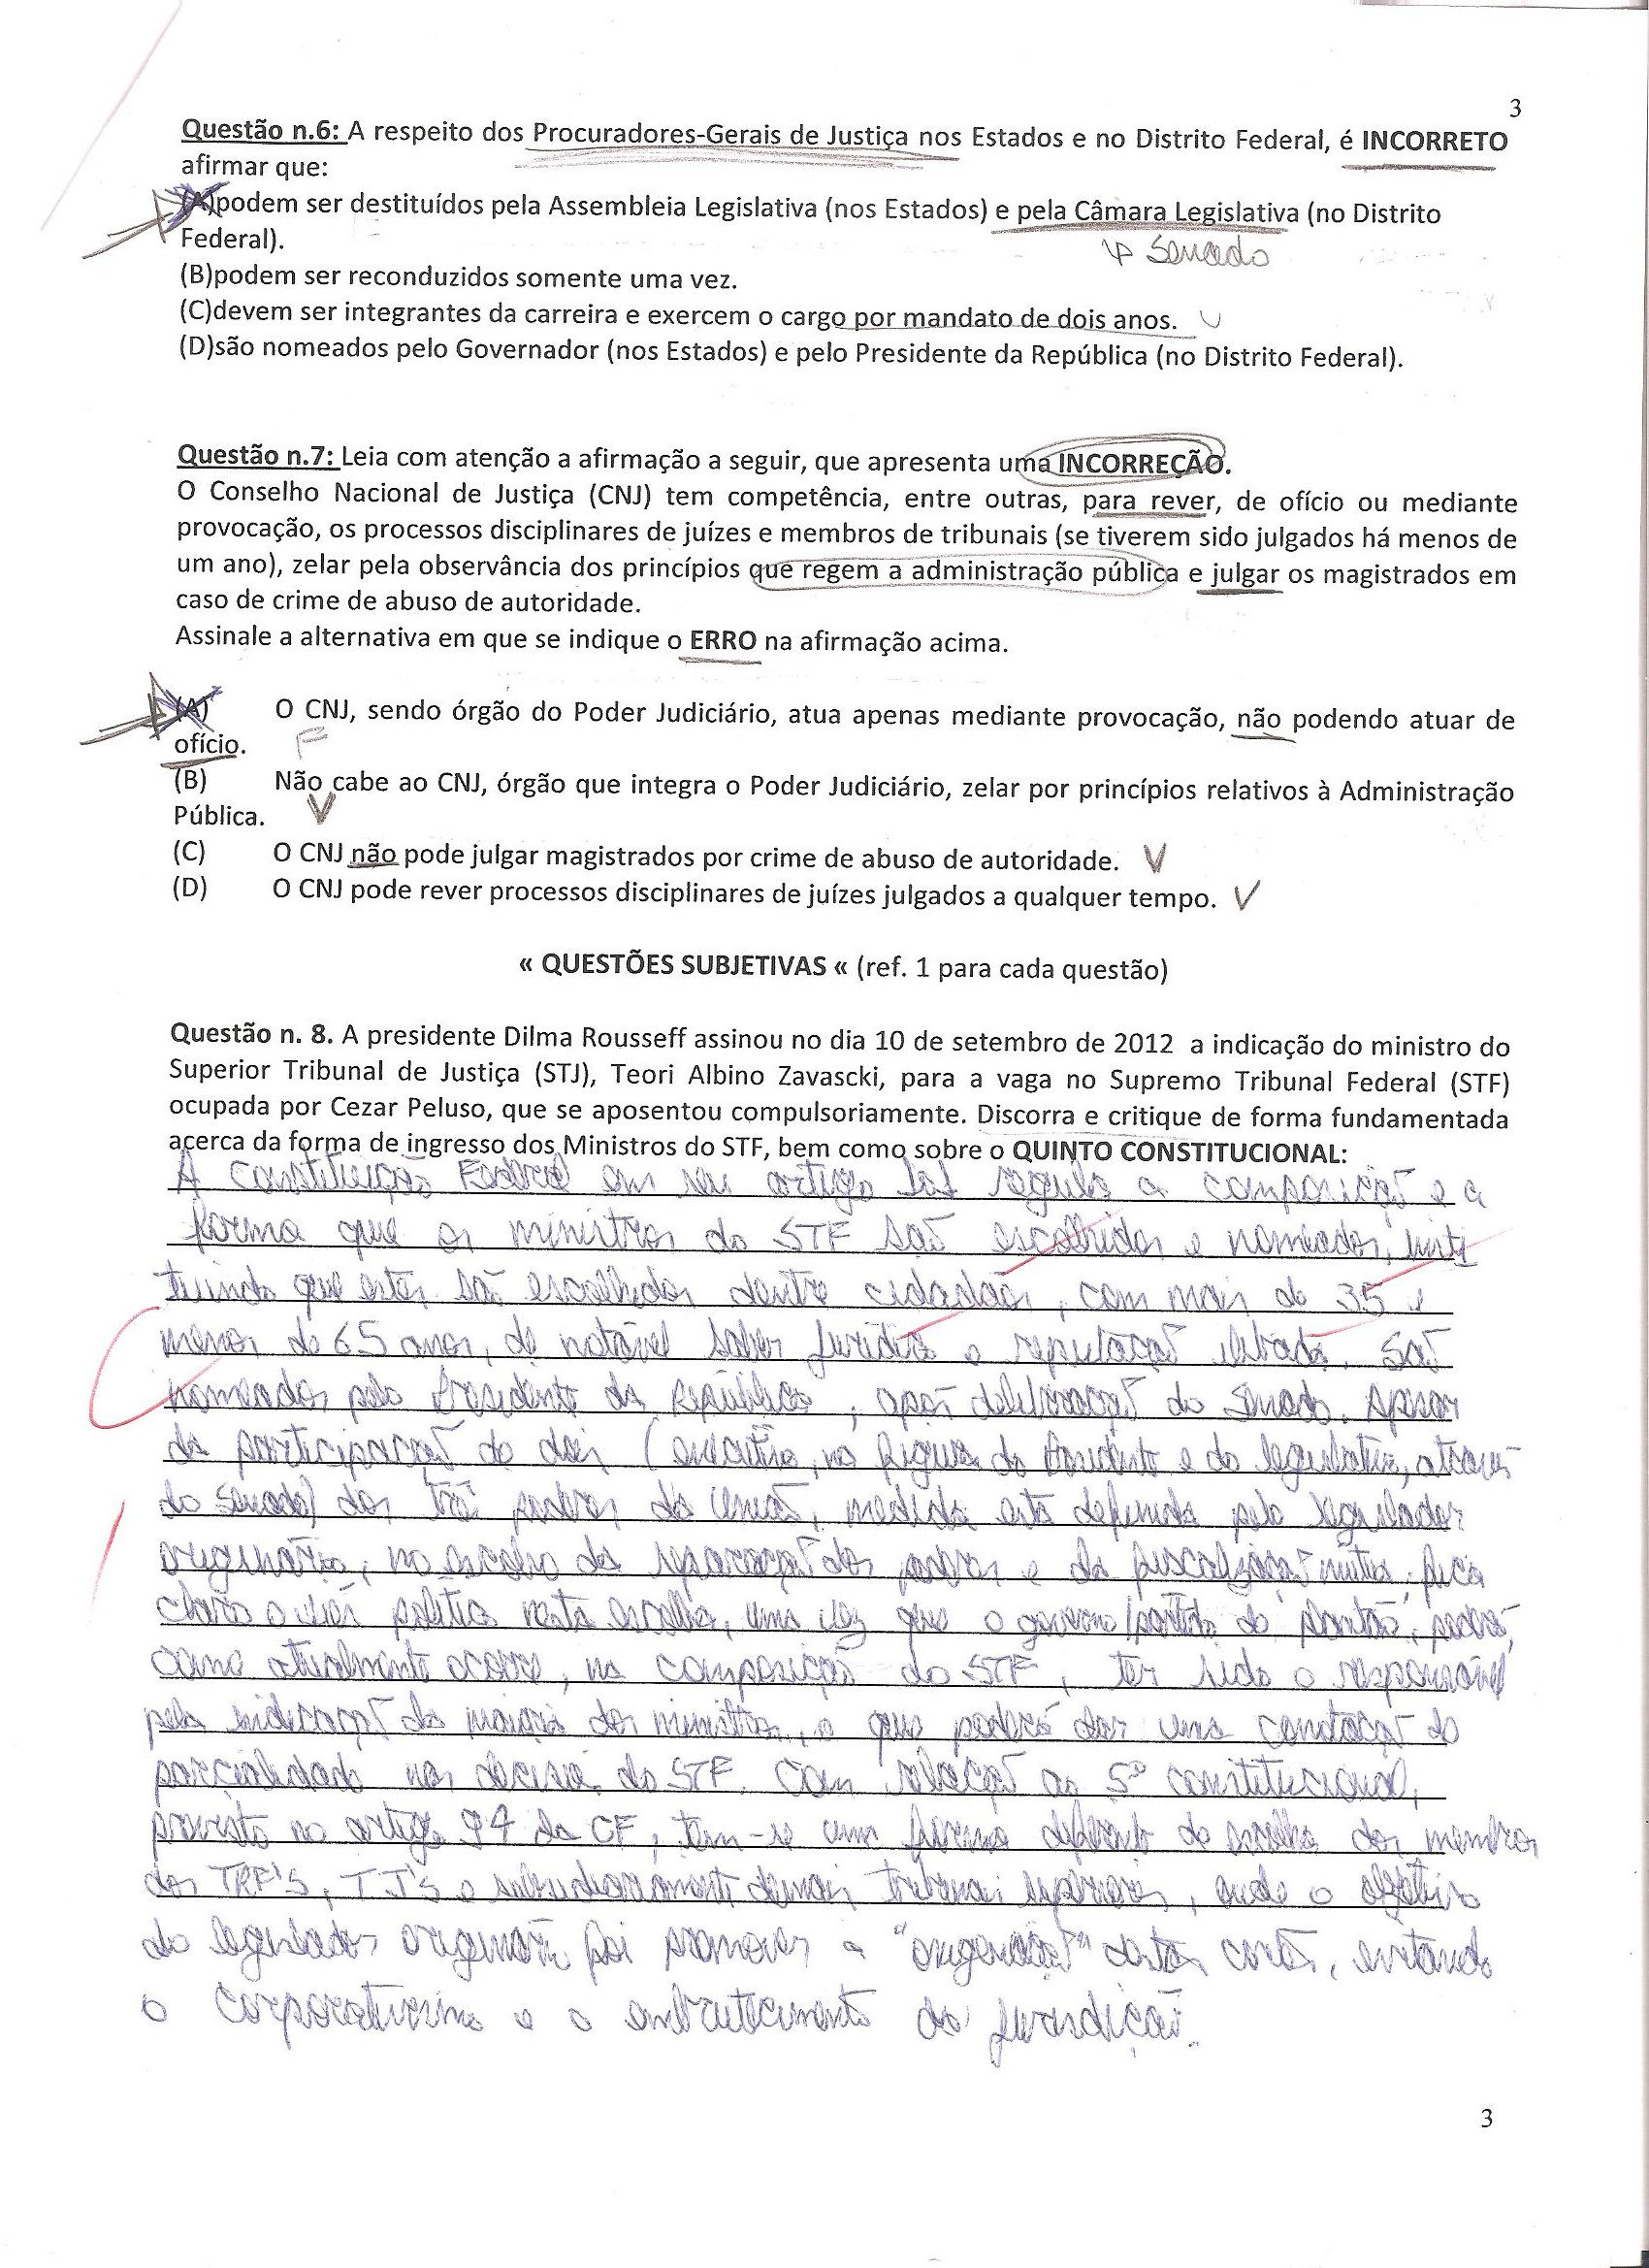 3
Questão n.6: A respeito dos Procuradores-Gerais de Justiça nos Estados e no Distrito Federal, é INCORRETO
afirmar que:
(A)podem ser destituídos pela Assembleia Legislativa (nos Estados) e pela Câmara Legislativa (no Distrito
Federal).
↳ Senado
(B)podem ser reconduzidos somente uma vez.
(C)devem ser integrantes da carreira e exercem o cargo por mandato de dois anos.
(D)são nomeados pelo Governador (nos Estados) e pelo Presidente da República (no Distrito Federal).
Questão n.7: Leia com atenção a afirmação a seguir, que apresenta uma INCORREÇÃO.
O Conselho Nacional de Justiça (CNJ) tem competência, entre outras, para rever, de ofício ou mediante
provocação, os processos disciplinares de juízes e membros de tribunais (se tiverem sido julgados há menos de
um ano), zelar pela observância dos princípios que regem a administração pública e julgar os magistrados em
caso de crime de abuso de autoridade.
Assinale a alternativa em que se indique o ERRO na afirmação acima.
(A) O CNJ, sendo órgão do Poder Judiciário, atua apenas mediante provocação, não podendo atuar de
ofício. F
(B) Não cabe ao CNJ, órgão que integra o Poder Judiciário, zelar por princípios relativos à Administração
Pública. V
(C) O CNJ não pode julgar magistrados por crime de abuso de autoridade. V
(D) O CNJ pode rever processos disciplinares de juízes julgados a qualquer tempo. V
« QUESTÕES SUBJETIVAS « (ref. 1 para cada questão)
Questão n. 8. A presidente Dilma Rousseff assinou no dia 10 de setembro de 2012 a indicação do ministro do
Superior Tribunal de Justiça (STJ), Teori Albino Zavascki, para a vaga no Supremo Tribunal Federal (STF)
ocupada por Cezar Peluso, que se aposentou compulsoriamente. Discorra e critique de forma fundamentada
acerca da forma de ingresso dos Ministros do STF, bem como sobre o QUINTO CONSTITUCIONAL:
A Constituição Federal em seu artigo 101 regula a composição e a
forma que os ministros do STF são escolhidos e nomeados, insti
tuindo que estes são escolhidos dentre cidadãos, com mais de 35 e
menos de 65 anos, de notável saber jurídico e reputação ilibada. São
nomeados pelo Presidente da República, após deliberação do Senado. Apesar
da participação de dois (executivo, na figura do Presidente e do legislativo, através
do Senado) dos três poderes da União, medida esta definida pelo legislador
originário, na escolha da separação dos poderes e da fiscalização mútua, fica
claro o viés político nesta escolha, uma vez que o governo/partido de "plantão", poderá,
como atualmente ocorre, na composição do STF, ter sido o responsável
pela indicação da maioria dos ministros, o que poderá dar uma conotação de
parcialidade nas decisões do STF. Com relação ao 5º constitucional,
previsto no artigo 94 da CF, tem-se uma forma diferente de escolha dos membros
dos TRF's, TJ's e demais tribunais superiores, onde o objetivo
do legislador originário foi promover a "oxigenação" destas cortes, evitando
o corporativismo e o da jurisdição.
3